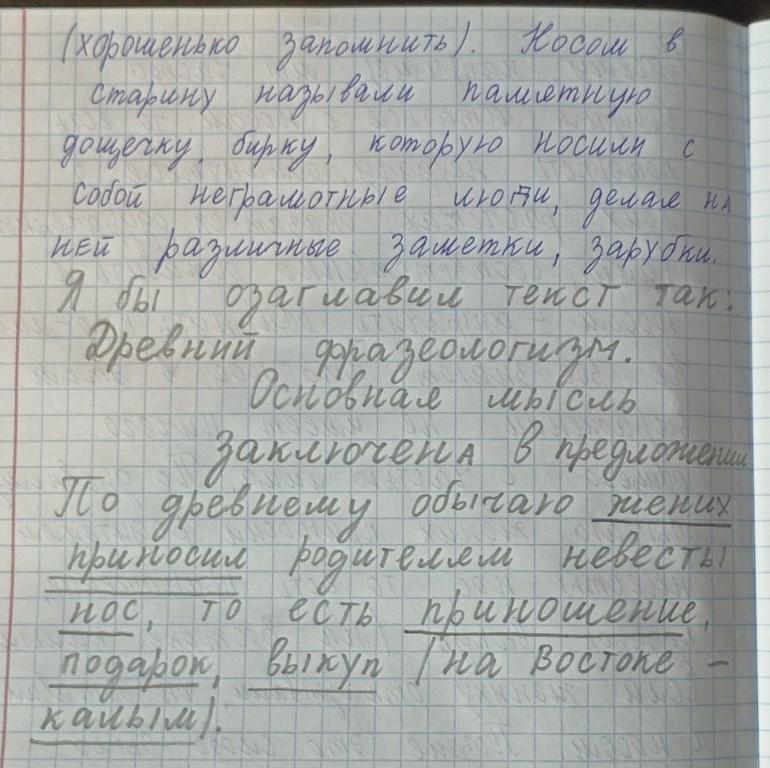 (хорошенько запомнить). Носом в
старину называли памятную
дощечку, бирку, которую носили с
собой неграмотные люди, делая на
ней различные заметки, зарубки.
Я бы озаглавил текст так:
Древний фразеологизм.
Основная мысль
заключена в предложении
По древнему обычаю жених
приносил родителям невесты
нос, то есть приношение,
подарок, выкуп (на Востоке –
калым).